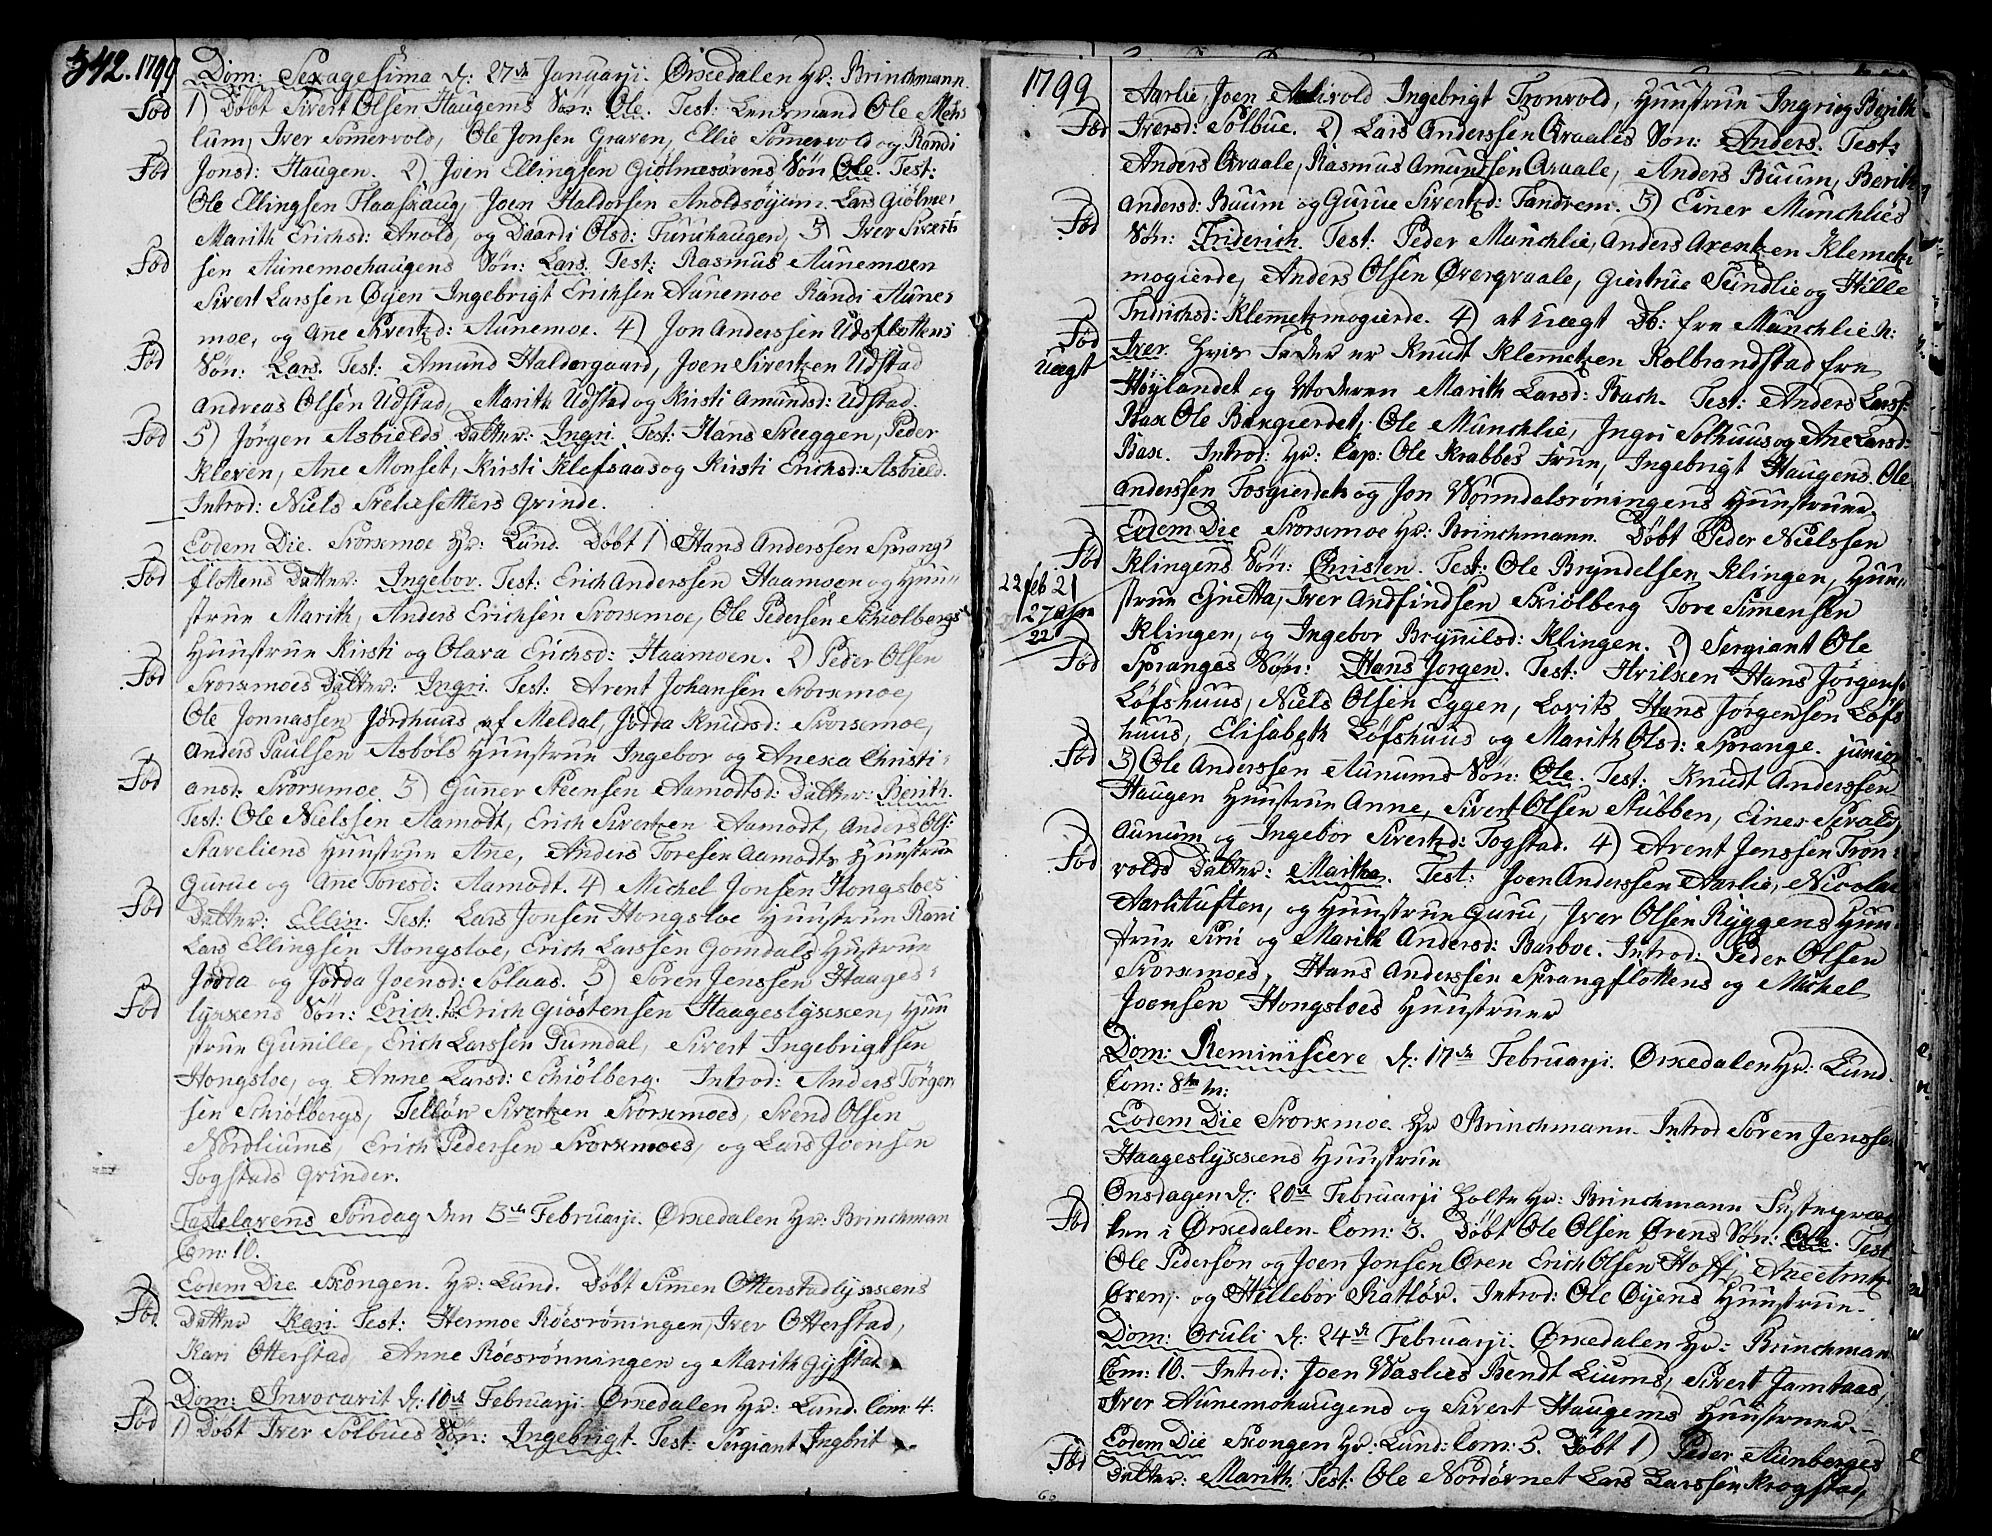 342. 1799
Dom: Sexagesima d: 27de Januarji. Ørkedalen Hr: Brinchmann.
Fød 1) Døbt Sivert Olsen Haugems Søn: Ole. Test: Lensmand Ole Mehs
lum, Iver Somervold, Ole Jonsen Graven, Ellie Somervold og Randi
Fød Jonsd: Haugen. 2) Joen Ellingsen Giølmesørens Søn Ole. Test:
Ole Ellingsen Flaaskaug, Joen Haldorsen Anoldsøyum. Lars Giølme,
Marith Erichsd: Anold, og Daardi Olsd: Furuhaugen, 3) Iver Siverts
Fød sen Aunemoehaugens Søn: Lars. Test: Rasmus Aunemoen
Sivert Larssen Øyen Ingebrigt Erichsen Aunemoe Randi Aune,
moe, og Ane Sivertzd: Aunemoe. 4) Jon Anderssen Udsflottens
Fød Søn: Lars. Test: Amund Haldorgaard, Joen Sivertzen Udstad
Andreas Olsen Udstad, Marith Udstad og Kirsti Amundsd: Udstad.
Fød 5) Jørgen Asbields Datter: Ingri. Test: Hans Sveggen, Peder
Kleven, Ane Monset, Kirsti Klefsaas og Kirsti Erichsd: Asbield.
Introd: Niels Sreliesetters Qvinde.
Eodem Die. Svorkmoe Hr: Lund. Døbt 1) Hans Anderssen Sprang,
Fød flottens Datter: Ingebor. Test: Erich Anderssen Haamoen og Huu,,
strue Marith, Anders Erichsen Svorkmoe, Ole Pedersen Schiolbergs
Huustrue Kirsti og Olava Erichsd: Haamoen. 2) Peder Olsen
Fød Svorkmoes Datter: Ingri. Test: Arent Johansen Svorkmoe,
Ole Jonnassen Jordhuus af Meldal, Jodta Knudsd: Svorkmoe,
Anders Paulsen Asbøls Huustrue Ingebor og Anexa Christi,
Fød ansd: Svorkmoe 3) Gunner Steensen Aamodts: Datter: Berith.
Test: Ole Nielssen Aamodt, Erich Sivertzen Aamodt, Anders Ols:
Staveliens Huustrue Ane, Anders Toresen Aamodts Huustrue
Gurue og Anne Toresd: Aamodt. 4) Michel Jonsen Hongsloes
Fød Datter: Ellin. Test: Lars Jonsen Hongsloe Huustrue Ranni
Lars Ellingsen Hongsloe, Erich Larssen Gomdals Hustrue
Jodta og Jodta Joensd: Solaas. 5) Soren Jenssen Haages,
Fød lykkens Søn: Erich. Erich Giøstensen Haageslykken, Huu
strue Gunille, Erich Larssen Dumdal, Sivert Ingebrigtsen
Hongsloe, og Anne Larsd: Schiølberg. Introd: Anders Jørgen
sen Schiølbergs, Tellov Sivertzen Svorkmoes, Svend Olsen
Nordliums, Erich Pedersen Svorkmoes, og Lars Joensen
Togstads Qvinder.
Fastelavens Søndag den 3de Februarji. Ørkedalen Hr: Brinchman
Com: 10.
Eodem Die. Skongen. Hr: Lund. Døbt Simen Otterstadlykkens
Fød Datter Kari. Test: Hermoe Röesröningen, Iver Otterstad,
Kari Otterstad, Anne Röesrönningen og Marith Gystad
Dom: Invocavit d: 10de Februarji. Ørkedalen Hr: Lund. Com: 4.
Fød 1) Døbt Iver Solbues Søn: Ingebrigt. Test: Sergiant Ingbrit
1799
Aarlie, Joen Aarlivold Ingebrigt Tronvold, Huustrue Ingri og Berith
Fød Iversd: Solbue. 2) Lars Anderssen Qvaales Søn: Anders. Test:
Anders Qvaale, Rasmus Amundsen Qvaale, Anders Buum, Berith
Andersd: Buum og Gurue Sivertzd: Tandrem. 3) Einer Munchlies
Fød Søn: Friderich. Test: Peder Munchlie, Anders Arentzen Klemetz
mogierde, Anders Olsen Øverqvaale, Giertrue Sundlie og Hille
Indrichsd: Klemetzmogierde. 4) et uægt Db: fra Munchlie N:
Fød uægt Iver. Hvis Fader er Knudt Klemetzen Kolbrandstad fra
Höylandet og Moderen Marith Larsd: Bach. Test: Anders Larss:
Bax Ole Baxgierdet, Ole Munchlie, Ingri Solhuus og Ane Larsd:
Bax. Introd: Hr: Cap: Ole Krabbes Frue, Ingebrigt Haugens. Ole
Anderssen Fosgierdets og Jon Wormdalsröningens Huustruer.
Eodem Die Svorkmoe Hr: Brinchmann. Døbt Peder Nielssen
Fød Klingens Søn: Christen. Test: Ole Bryndelsen Klingen, Huu,,
22 feb 21
strue Gietta, Iver Andfindsen Skiolberg Tore Simensen
27
22
Klingen, og Ingebor Brynilsd: Klingen. 2) Sergiant Ole
Fød Spranges Søn: Hans Jorgen. Test: Hans Jørgens:
Löfshuus, Niels Olsen Eggen, Hans Jørgensen Löfs
huus, Elisabeth Löfshuus og Marith Olsd: Sprange. junior
Fød 3) Ole Anderssen Aunums Søn: Ole. Test: Knudt Anderssen
Haugen Huustrue Anne, Sivert Olsen Stubben, Einer Sivalds,
Aunum og Ingebor Sivertzd: Togstad. 4) Arent Jenssen Tron,
Fød volds Datter: Martha. Test: Joen Anderssen Aarlie, Nicolai
Aarlituften, og Huustrue Guru, Iver Olsen Ryggens Huu,
strue Siri og Marith Andersd: Barboe. Introd: Peder Olsen
Svorkmoes, Hans Anderssen Sprangflottens og Michel
Joensen Hongsloes Huustruer
Dom: Reminiscere d: 17de Februarji. Ørkedalen Hr: Lund.
Com: 8
Eodem Die Svorkmoe Hr Brinchmann. Introd Soren Jenssen
Haageslykkens Huustrue
Onsdagen d: 20de Februarji holte Hr: Brinchmann Fasteprædi
Fød ken i Ørkedalen. Com: 3. Døbt Ole Olsen Ørens Søn: Ole. Test:
Ole Pedersøn og Joen Jonsen Øren Erich Olsen Hoff, Ane
Øren, og Hillebor Ratløv. Introd: Ole Øyens Huustrue.
Dom: Oculi d: 24de Februarji. Ørkedalen Hr: Brinchman
Com: 10. Introd: Joen Waslies Bendt Liums, Sivert Jamtaas,
Iver Aunemohaugens og Sivert Haugems Huustruer.
Eodem Die Skongen Hr: Lund: Com: 5. Døbt 1) Peder Aunberges
Fød Datter: Marith. Test: Ole Nordørnet Lars Larssen Krogstad,